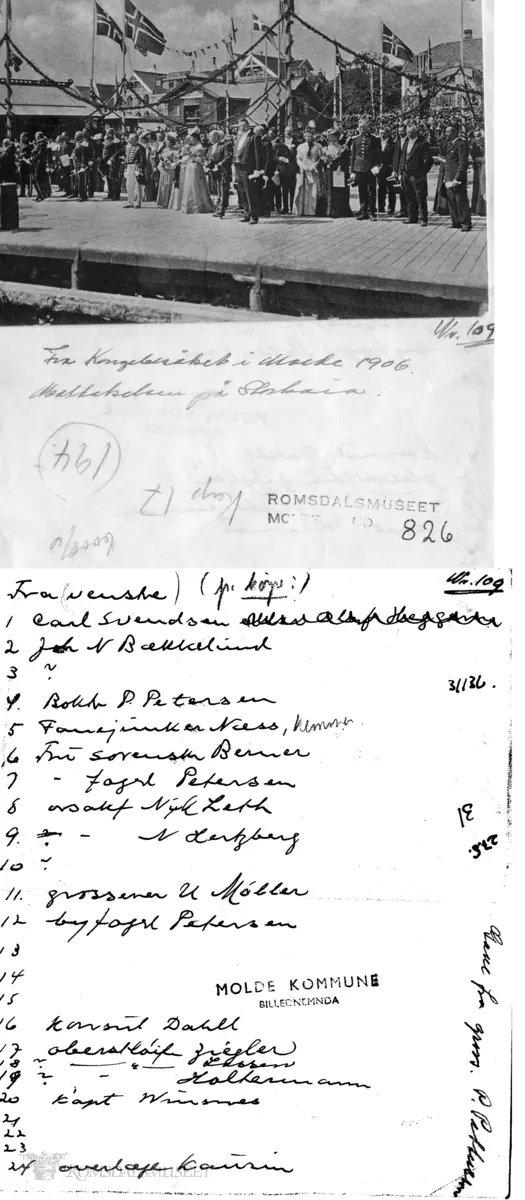 Nr. 109
Fra Kongebesøket i Molde 1906.
Mottakelsen på Storkaia.
194
kop 17
ROMSDALSMUSEET
MOLDE NO. 826
Fra venstre) (fr. høyre:)
Nr. 109
1 Carl Svendsen
2 Joh N Bækkelund
3 ?
31136.
4. Bokh P. Petersen
5 Fanejunker Næss, kemner
6 Fru sorenskr Berner
7 - fogd Petersen
8 orsakf Nyk Leth
9. ? - N Hertzberg
10 ?
11. grosserer U Møller
12 byfogd Petersen
13
14
MOLDE KOMMUNE
15
BILLEDNEMNDA
16 Konsul Dahll
17 oberstløit Ziegler
18 ? — " — Lassen
19 ? - Holtermann
20 Kapt Winsnes
21
22
23
24 overlæge Kaurin
ROMSDALSMUSEET